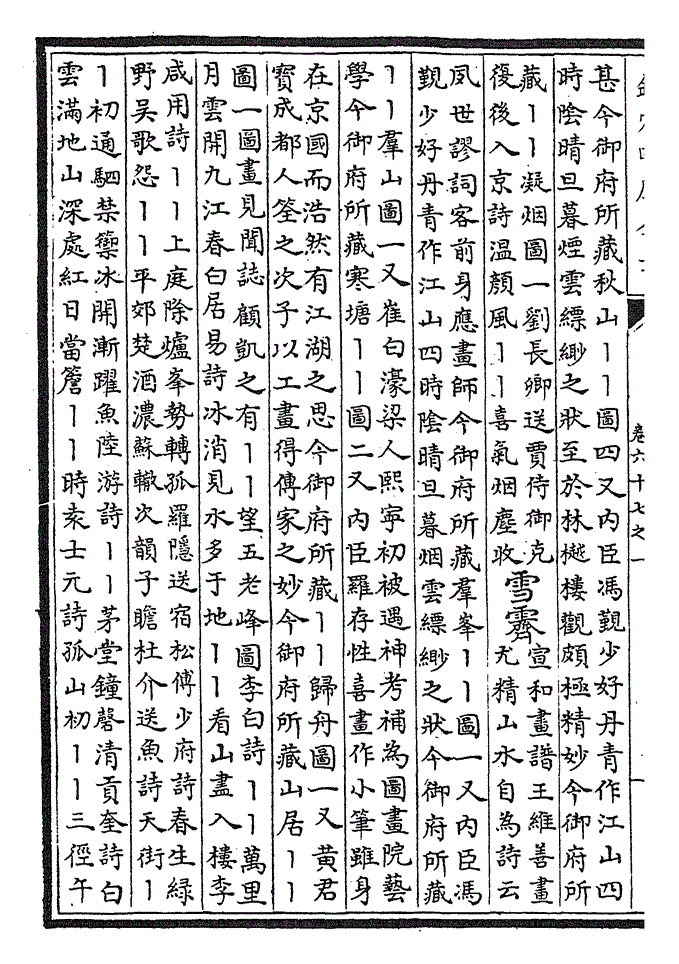 卷六十七之一
一
甚今御府所藏秋山丨丨圖四又内臣馮覲少好丹青作江山四
時陰晴旦暮煙雲縹緲之狀至於林樾樓觀頗極精妙今御府所
藏丨丨凝烟圖一劉長卿送賈侍御克
復後入京詩温顔風丨丨喜氣烟塵收
雪霽
宣和畫譜王維善畫
尤精山水自為詩云
夙世謬詞客前身應畫師今御府所藏羣峯丨丨圖一又内臣馮
覲少好丹青作江山四時陰晴旦暮烟雲縹緲之狀今御府所藏
丨丨羣山圖一又崔白濠梁人熙寧初被遇神考補為圖畫院藝
學今御府所藏寒塘丨丨圖二又内臣羅存性喜畫作小筆雖身
在京國而浩然有江湖之思今御府所藏丨丨歸舟圖一又黄君
寳成都人筌之次子以工畫得傳家之妙今御府所藏山居丨丨
圖一圖畫見聞誌顧凱之有丨丨望五老峰圖李白詩丨丨萬里
月雲開九江春白居易詩冰消見水多于地丨丨看山盡入樓李
咸用詩丨丨上庭除爐峯勢轉孤羅隱送宿松傅少府詩春生緑
野吴歌怨丨丨平郊楚酒濃蘇轍次韻子瞻杜介送魚詩天街丨
丨初通駟禁籞冰開漸躍魚陸游詩丨丨茅堂鐘磬清貢奎詩白
雲滿地山深處紅日當簷丨丨時袁士元詩孤山初丨丨三徑午